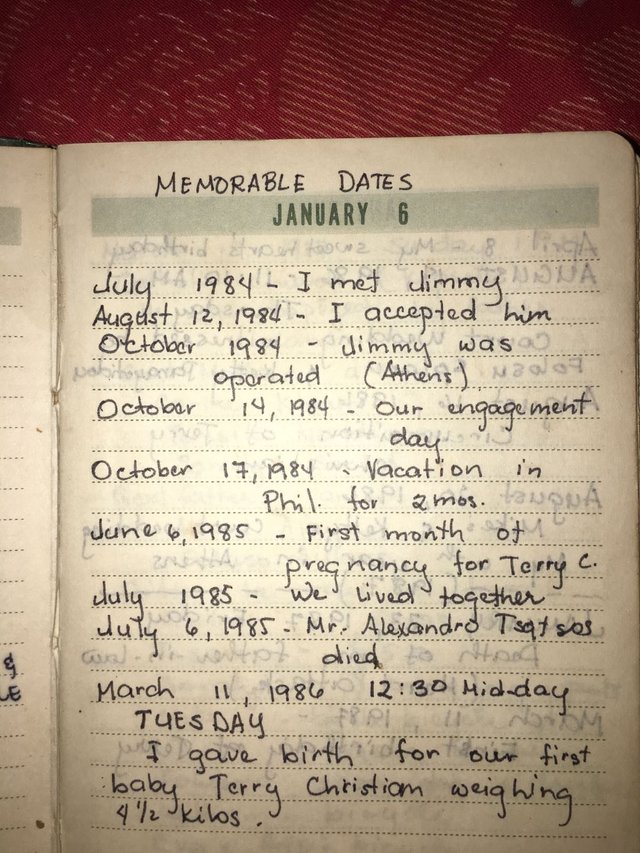 MEMORABLE DATES
JANUARY 6
July 1984 - I met Jimmy
August 12, 1984 - I accepted him
October 1984 - Jimmy was
operated (Athens)
October 14, 1984 - Our engagement
day
October 17, 1984 - Vacation in
Phil. for 2 mos.
June 6, 1985 - First month of
pregnancy for Terry C.
July 1985 - We lived together
July 6, 1985 - Mr. Alexandro Tsatsos
died
March 11, 1986 12:30 Mid-day
TUESDAY
I gave birth for our first
baby Terry Christian weighing
4 1/2 kilos.